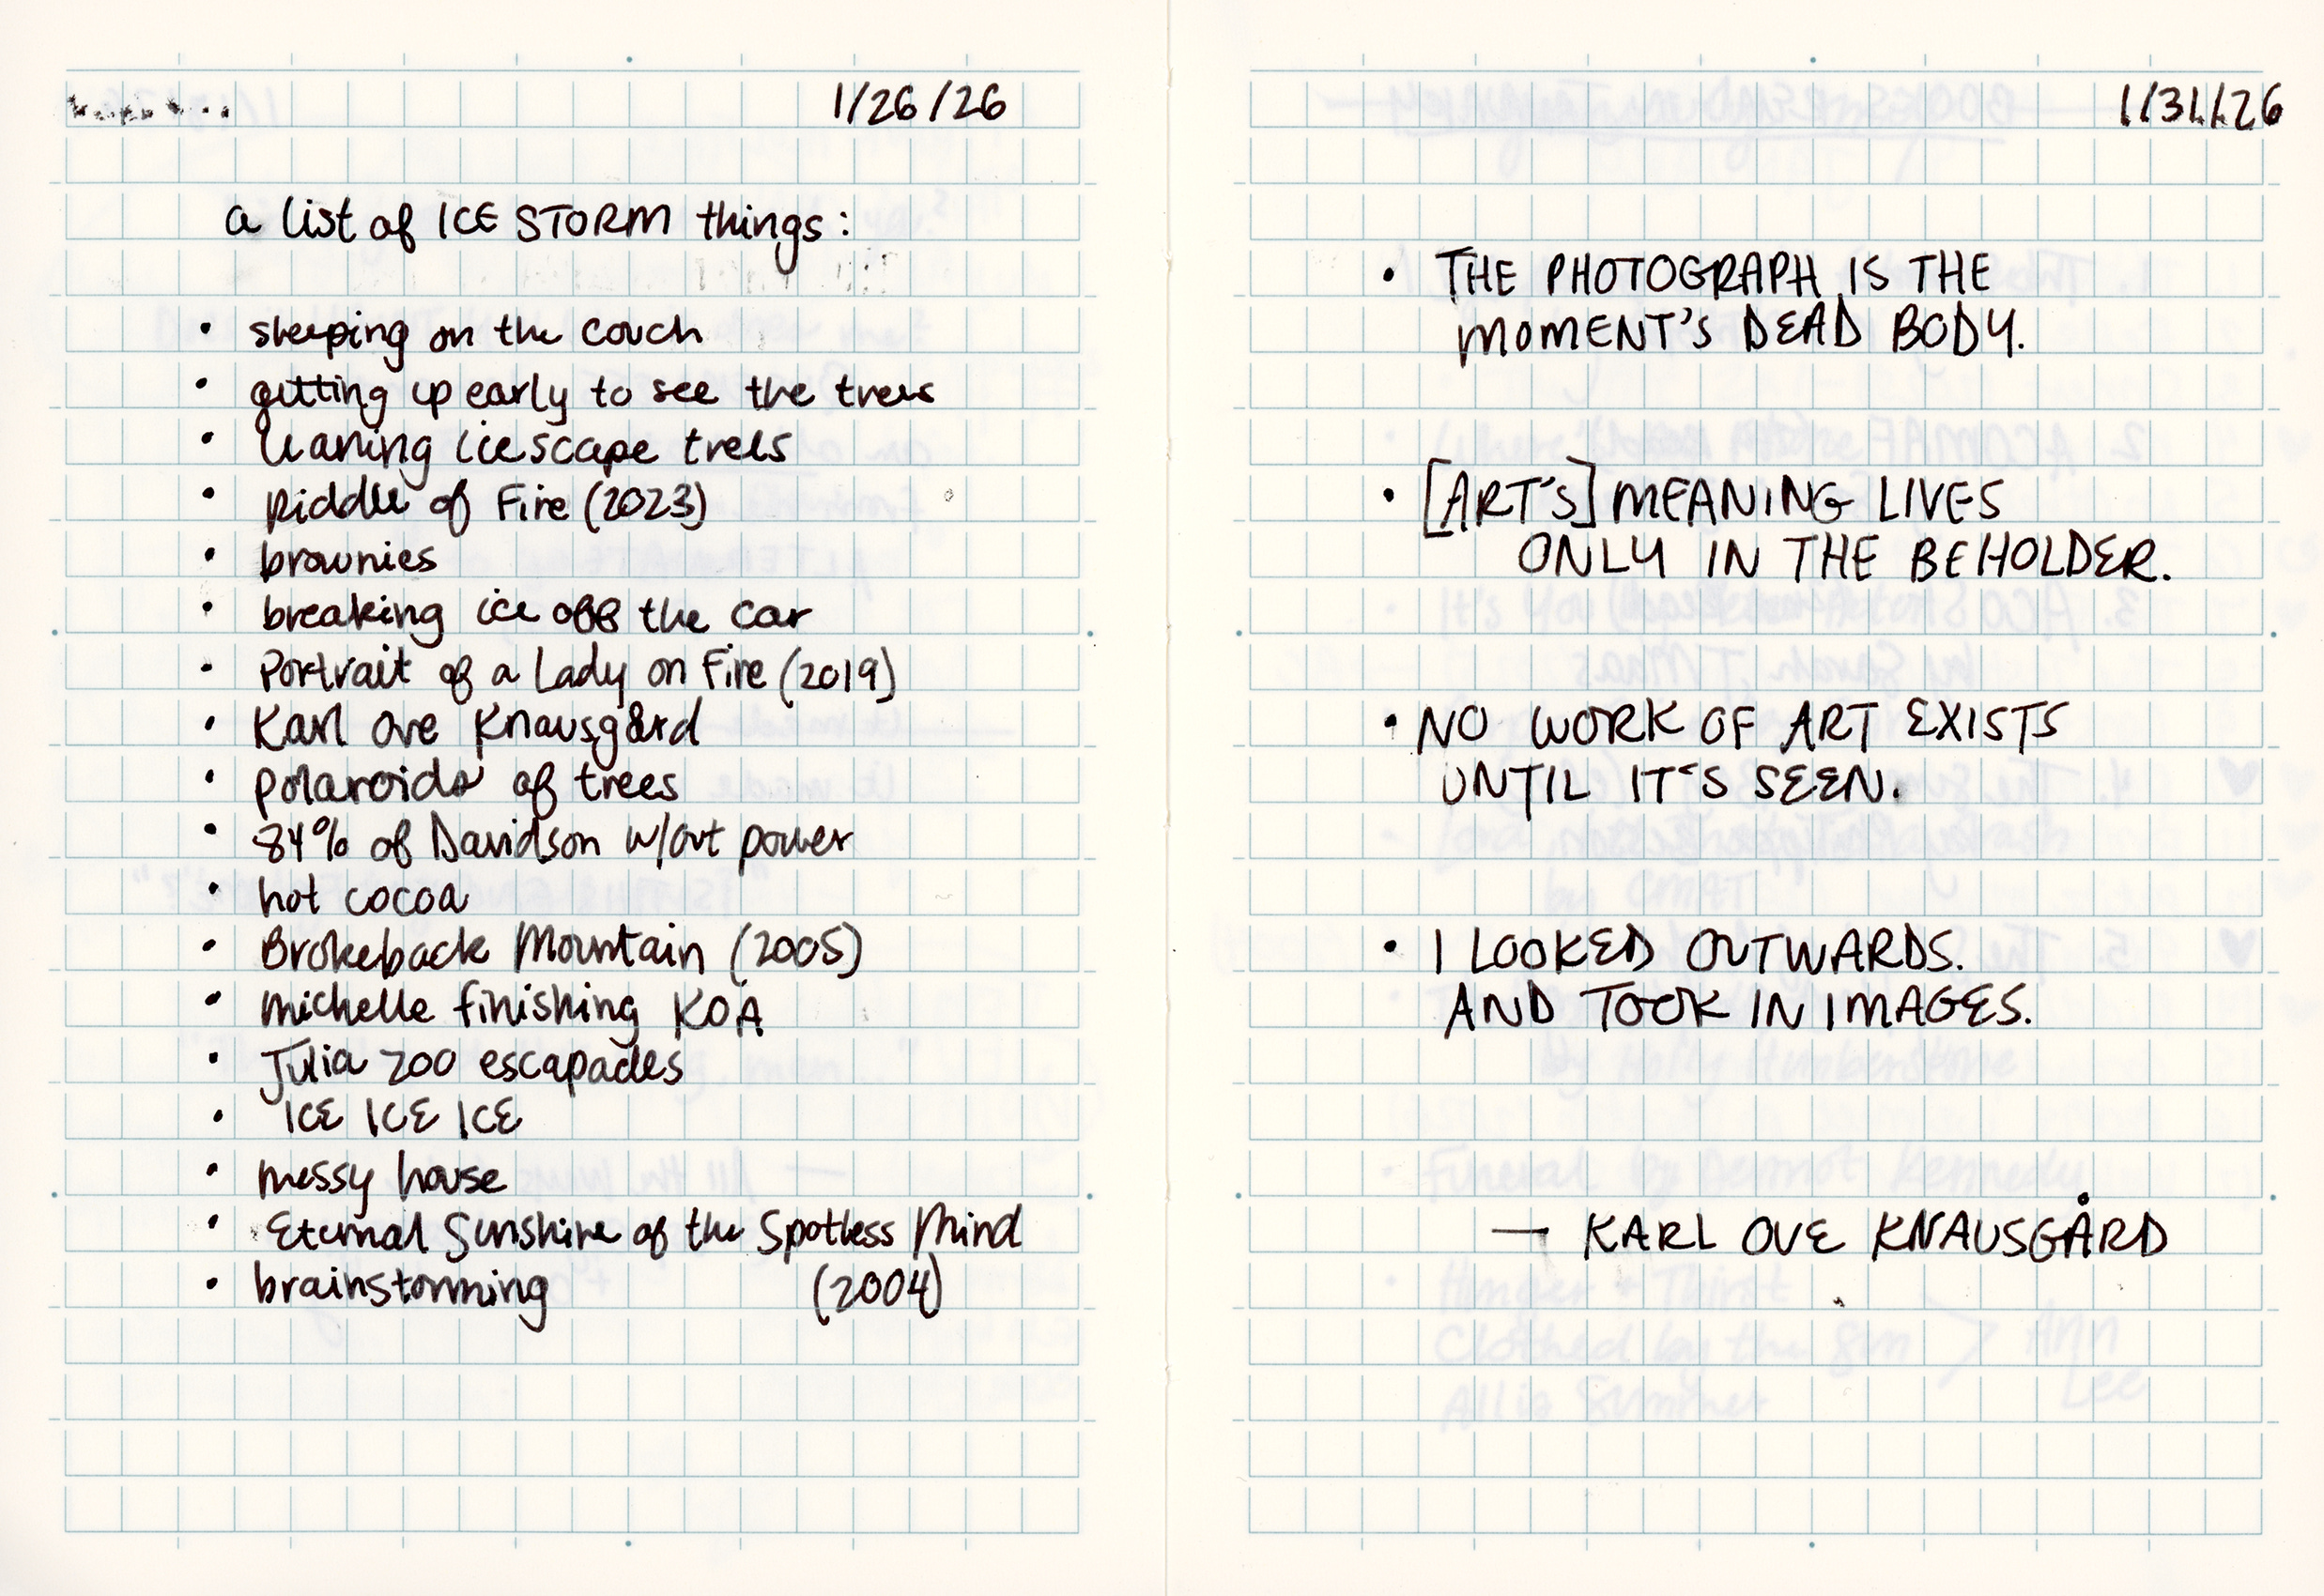 1/26/26
a list of ICE STORM things:
• sleeping on the couch
• getting up early to see the trees
• leaning icescape trees
• Riddle of Fire (2023)
• brownies
• breaking ice off the car
• Portrait of a Lady on Fire (2019)
• Karl Ove Knausgård
• polaroids of trees
• 84% of Davidson w/out power
• hot cocoa
• Brokeback Mountain (2005)
• Michelle finishing KOA
• Julia 200 escapades
• ICE ICE ICE
• messy house
• Eternal Sunshine of the Spotless Mind
• brainstorming (2004)
1/31/26
• THE PHOTOGRAPH IS THE
MOMENT'S DEAD BODY.
• [ART'S] MEANING LIVES
ONLY IN THE BEHOLDER.
• NO WORK OF ART EXISTS
UNTIL IT'S SEEN.
• I LOOKED OUTWARDS.
AND TOOK IN IMAGES.
— KARL OVE KNAUSGÅRD